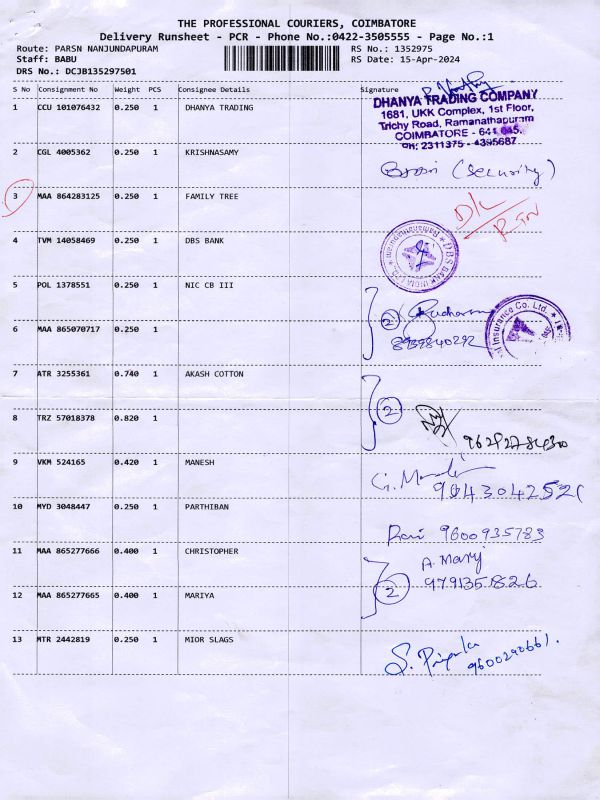 THE PROFESSIONAL COURIERS, COIMBATORE
Delivery Runsheet - PCR - Phone No.:0422-3505555 - Page No.:1
Route: PARSN NANJUNDAPURAM RS No.: 1352975
Staff: BABU RS Date: 15-Apr-2024
DRS No.: DCJB135297501
S No Consignment No Weight PCS Consignee Details Signature
1 CCU 101076432 0.250 1 DHANYA TRADING
DHANYA TRADING COMPANY
1681, UKK Complex, 1st Floor,
Trichy Road, Ramanathapuram
COIMBATORE - 641 045.
Ph: 2311375 - 4395687
2 CGL 4005362 0.250 1 KRISHNASAMY
(Security)
3 MAA 864283125 0.250 1 FAMILY TREE
D/L
RTN
4 TVM 14058469 0.250 1 DBS BANK
DBS BANK INDIA LTD., Ramanathapuram
5 POL 1378551 0.250 1 NIC CB III
2
Insurance Co. Ltd.
6 MAA 865070717 0.250 1
8939840292
7 ATR 3255361 0.740 1 AKASH COTTON
2
8 TRZ 57018378 0.820 1
9 VKM 524165 0.420 1 MANESH
10 MYD 3048447 0.250 1 PARTHIBAN
Ravi 9600935783
11 MAA 865277666 0.400 1 CHRISTOPHER
A. Mary
9791351826
12 MAA 865277665 0.400 1 MARIYA
2
13 MTR 2442819 0.250 1 MIOR SLAGS
S. Priyanka
9600290661.